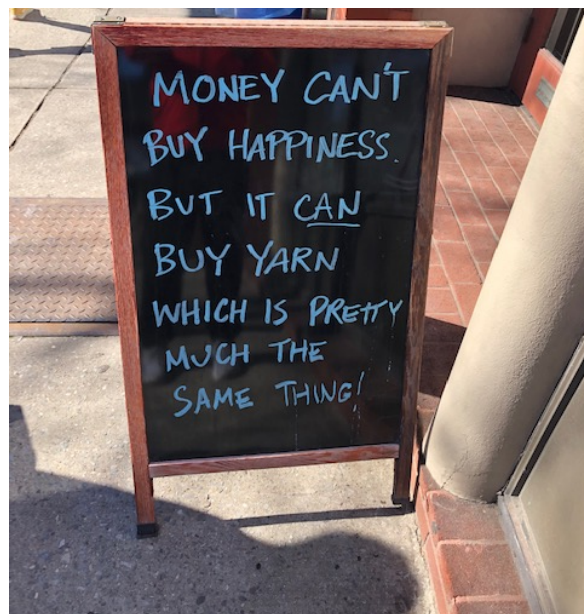 MONEY CAN'T
BUY HAPPINESS.
BUT IT CAN
BUY YARN
WHICH IS PRETTY
MUCH THE
SAME THING!